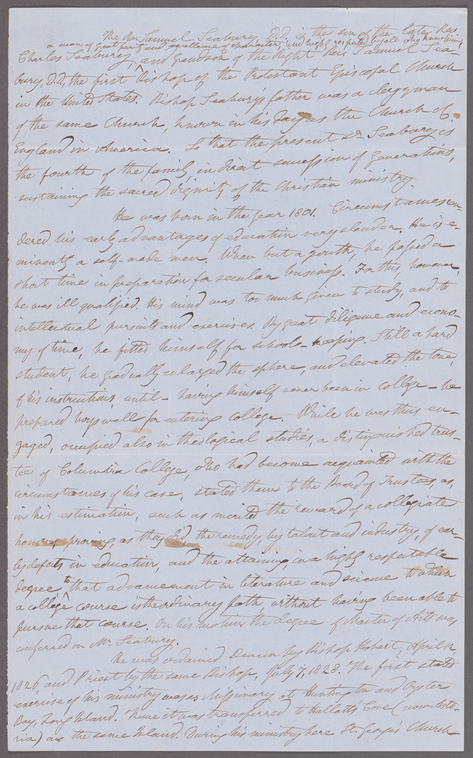 The Rev. Samuel Seabury, D.D. is the son of the late Rev.
a man of great purity and excellence of character, and highly respected by all who knew him,
Charles Seabury, and grandson of the Right Rev. Samuel Sea-
bury, D.D., the first Bishop of the Protestant Episcopal Church
in the United States. Bishop Seabury's father was a clergyman
of the same Church, known in his day as the Church of
England in America. So that the present Dr. Seabury is
the fourth of the family, in direct succession of generations,
sustaining the sacred dignity of the Christian ministry.
He was born in the year 1801. Circumstances ren-
dered his early advantages of education very slender. He is e-
minently a self-made man. When but a youth, he passed a
short time in preparation for secular business. For this, however,
he was ill qualified. His mind was too much given to study, and to
intellectual pursuits and exercises. By great diligence and econo-
my of time, he fitted himself for school-keeping. Still a hard
student, he gradually enlarged the sphere, and elevated the tone,
of his instructions, until - having himself never been in college - he
prepared boys well for entering college. While he was thus en-
gaged, occupied also in theological studies, a distinguished trus-
tee of Columbia College, who had become acquainted with the
circumstances of his case, stated them to the Board of Trustees, as,
in his estimation, such as merited the reward of a collegiate
honor, proving as they did the remedy, by talent and industry, of ear-
ly defects in education, and the attaining in a highly respectable
degree to that advancement in literature and science to which
a college course is the ordinary path, without having been able to
pursue that course. On his motion the degree of Master of Arts was
conferred on Mr. Seabury.
He was ordained Deacon by Bishop Hobart, April 12,
1826, and Priest by the same Bishop, July 7, 1828. The first stated
exercise of his ministry was as Missionary at Huntington and Oyster
Bay, Long Island. Thence it was transferred to Hallett's Cove (now Asto-
ria) on the same Island. During his ministry here St. George's Church